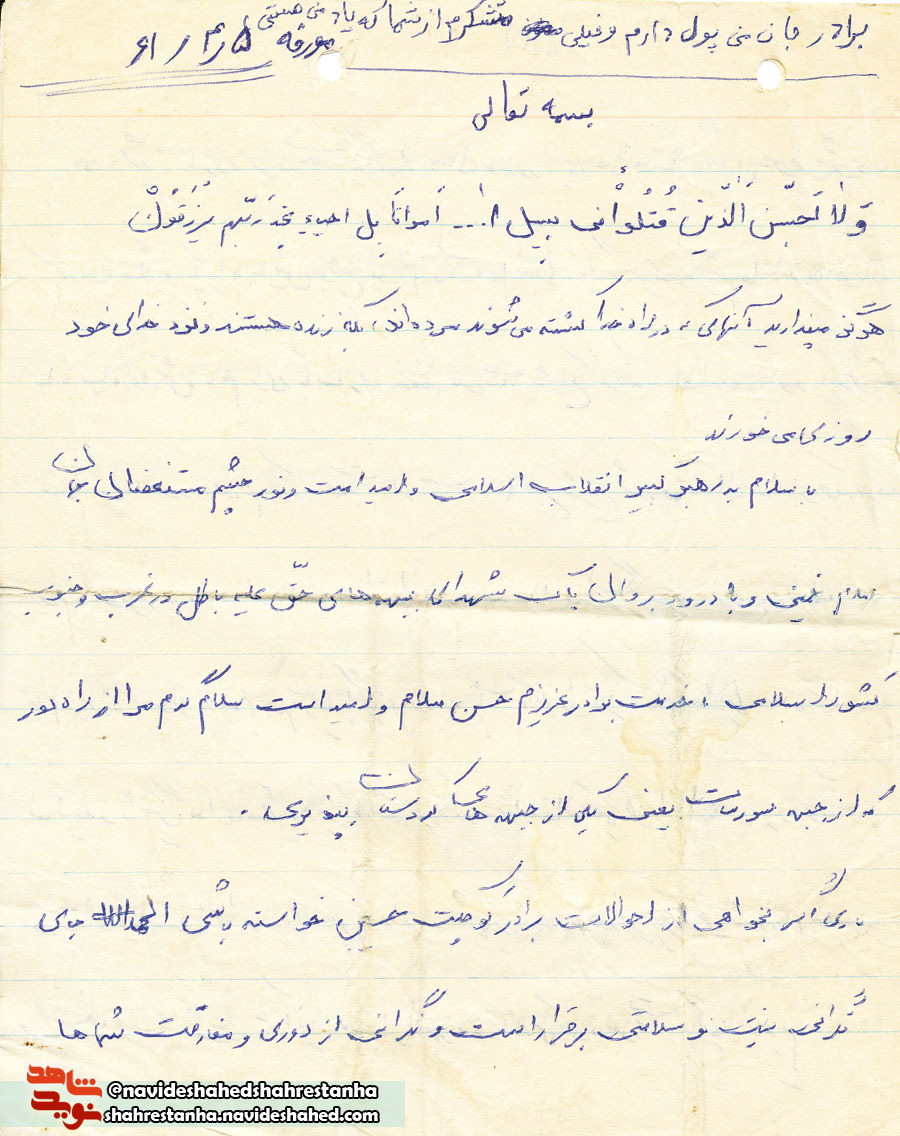 برادر جان من پول دارم و خیلی متشکرم از شما که یاد من هستی
مورخه ۵ / ۳ / ۶۱
بسمه تعالی
وَلا تَحسَبَنَّ الَّذینَ قُتِلُوْا فی سبیل ا... اَمواتاً بل احیاءٍ عِندَ رَبِّهم یُرْزَقُونْ
هرگز مپندارید آنهائی که در راه خدا کشته می شوند مرده اند، بلکه زنده هستند و نزد خدای خود
روزی می خورند
با سلام به رهبر کبیر انقلاب اسلامی و امید امت و نور چشم مستضعفان جهان
امام خمینی و با درود بروان پاک شهدای جبهه های حقّ علیه باطل در غرب و جنوب
کشور اسلامی، خدمت برادر عزیزم حسن سلام و امید است سلام گرم مرا از راه دور
که از جبهه یعنی یکی از جبهه های کردستان بپذیری.
باری اگر بخواهی از احوالات برادر کوچکت حسین خواسته باشی الحمدالله جای
نگرانی نیست و سلامتی برقرار است و نگرانی از دوری و مفارقت شماها
شاهد
نوید
@navideshahedshahrestanha
shahrestanha.navideshahed.com